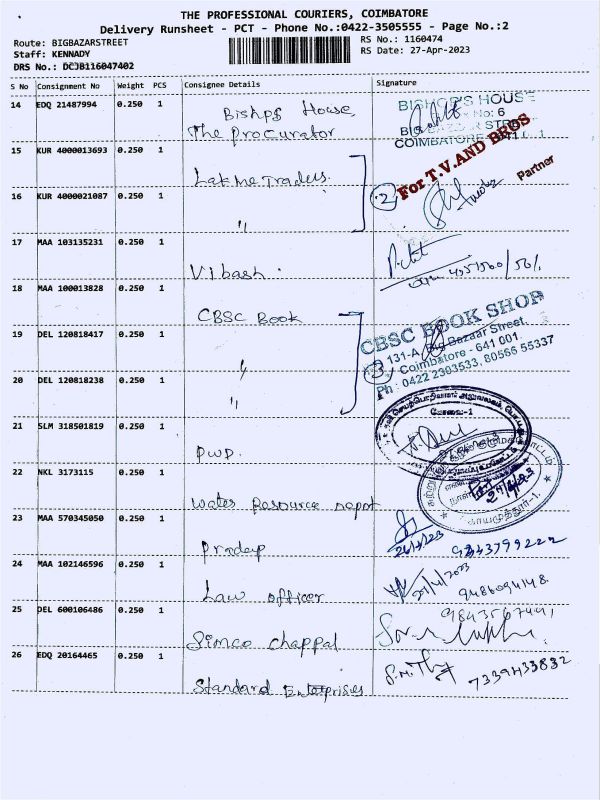 THE PROFESSIONAL COURIERS, COIMBATORE
Delivery Runsheet - PCT - Phone No.:0422-3505555 - Page No.:2
Route: BIGBAZARSTREET
RS No.: 1160474
Staff: KENNADY
RS Date: 27-Apr-2023
DRS No.: DCJB116047402
S No Consignment No Weight PCS Consignee Details Signature
14 EDQ 21487994 0.250 1 Bishps House,
The procurator
BISHOP'S HOUSE
No: 6
COIMBATORE
15 KUR 4000013693 0.250 1
Lakme Traders.
For T.V.AND BROS
Partner
2
16 KUR 4000021087 0.250 1
"
17 MAA 103135231 0.250 1
Vibash.
18 MAA 100013828 0.250 1
CBSC Book
CBSC BOOK SHOP
131-A, Big Bazaar Street,
Coimbatore - 641 001
Ph : 0422 2303533, 80566 55337
3
19 DEL 120818417 0.250 1
"
20 DEL 120818238 0.250 1
"
21 SLM 318501819 0.250 1
PWD.
கோவை-1
22 NKL 3173115 0.250 1
Water Resource
23 MAA 570345050 0.250 1
Pradeep
26/4/23
24 MAA 102146596 0.250 1
Law officer
9486094148
25 DEL 600106486 0.250 1
Simco chappal
26 EDQ 20164465 0.250 1
Standard Enterprises
7339433832